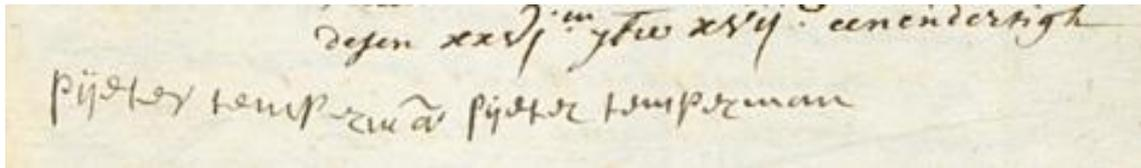 desen xxvj en xvij eenendertigh
pijeter tempermã pijeter temperman